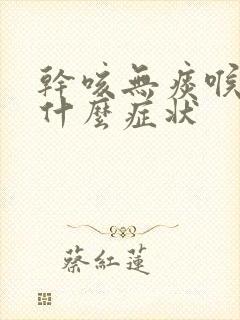 幹咳無痰喉
什麼症狀
蔡紅蓮